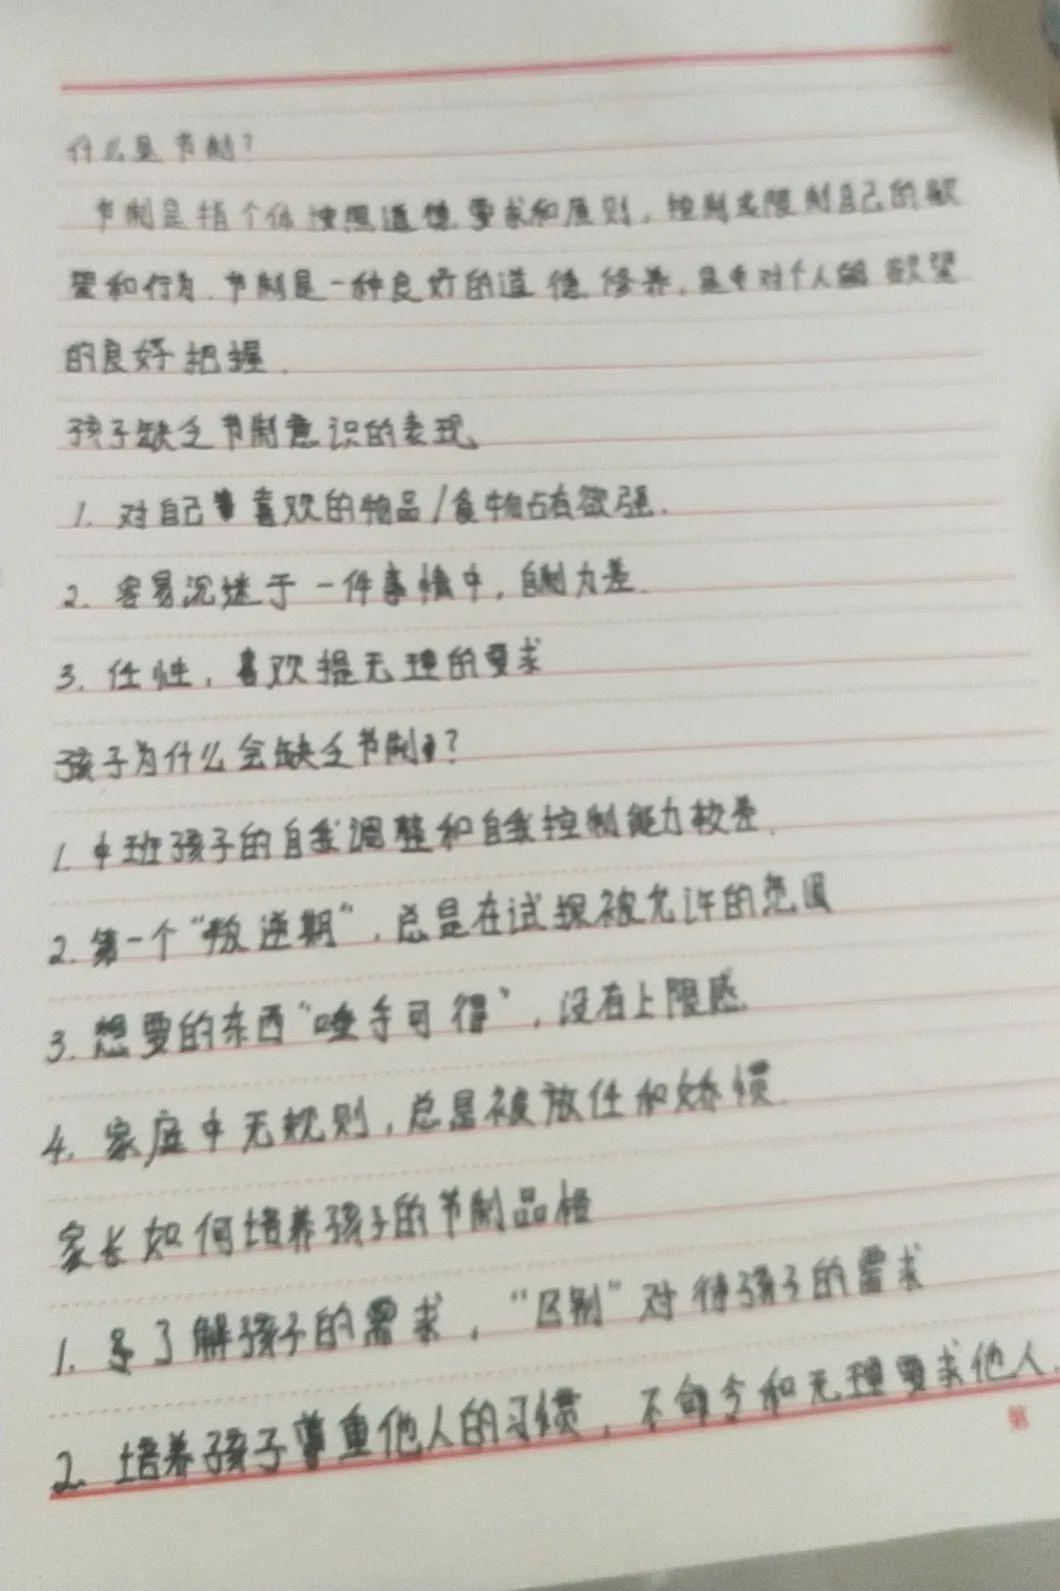 什么是节制?
节制是指个体按照道德要求和原则,控制或限制自己的欲
望和行为.节制是一种良好的道德修养,是对个人的欲望
的良好把握.
孩子缺乏节制意识的表现
1. 对自己喜欢的物品/食物占有欲强.
2. 容易沉迷于一件事情中,自制力差.
3. 任性,喜欢提无理的要求
孩子为什么会缺乏节制?
1. 中班孩子的自我调整和自我控制能力较差.
2. 第一个“叛逆期”,总是在试探被允许的范围
3. 想要的东西“唾手可得”,没有上限感.
4. 家庭中无规则,总是被放任和娇惯.
家长如何培养孩子的节制品格
1. 了解孩子的需求,“区别”对待孩子的需求
2. 培养孩子尊重他人的习惯,不命令和无理要求他人.
第